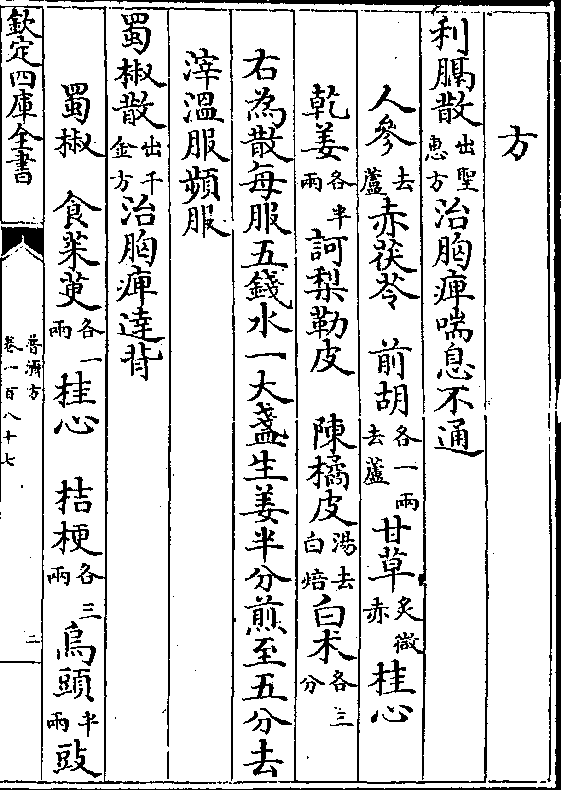 方
利膈散出聖惠方治胸痺喘息不通
人參去蘆赤茯苓 前胡各一兩去蘆甘草炙微赤桂心
乾姜各半兩訶梨勒皮 陳橘皮湯去白焙白术各三分
右為散每服五錢水一大盞生姜半分煎至五分去
滓溫服頻服
蜀椒散出千金方治胸痺達背
蜀椒 食茱萸各一兩桂心 桔梗各三兩烏頭半兩豉
欽定四庫全書
普濟方
卷一百八十七
二